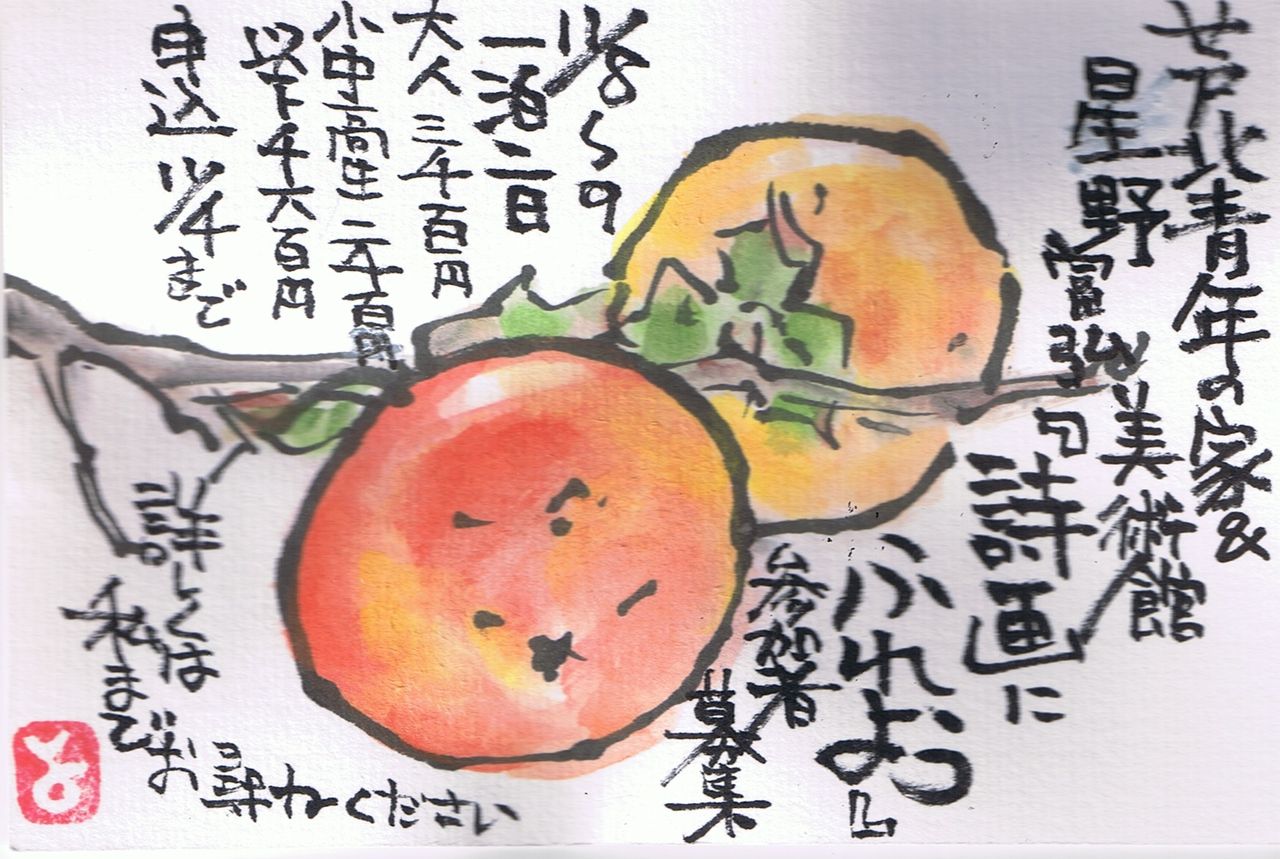 芦北青年の家&
星野富弘美術館
「詩画に
ふれよう」
参加者
募集
11/8〜9
一泊二日
大人 三千百円
小中高生 二千百円
以下千六百円
申込 10/4まで
詳しくは
私まで
お尋ねください
と